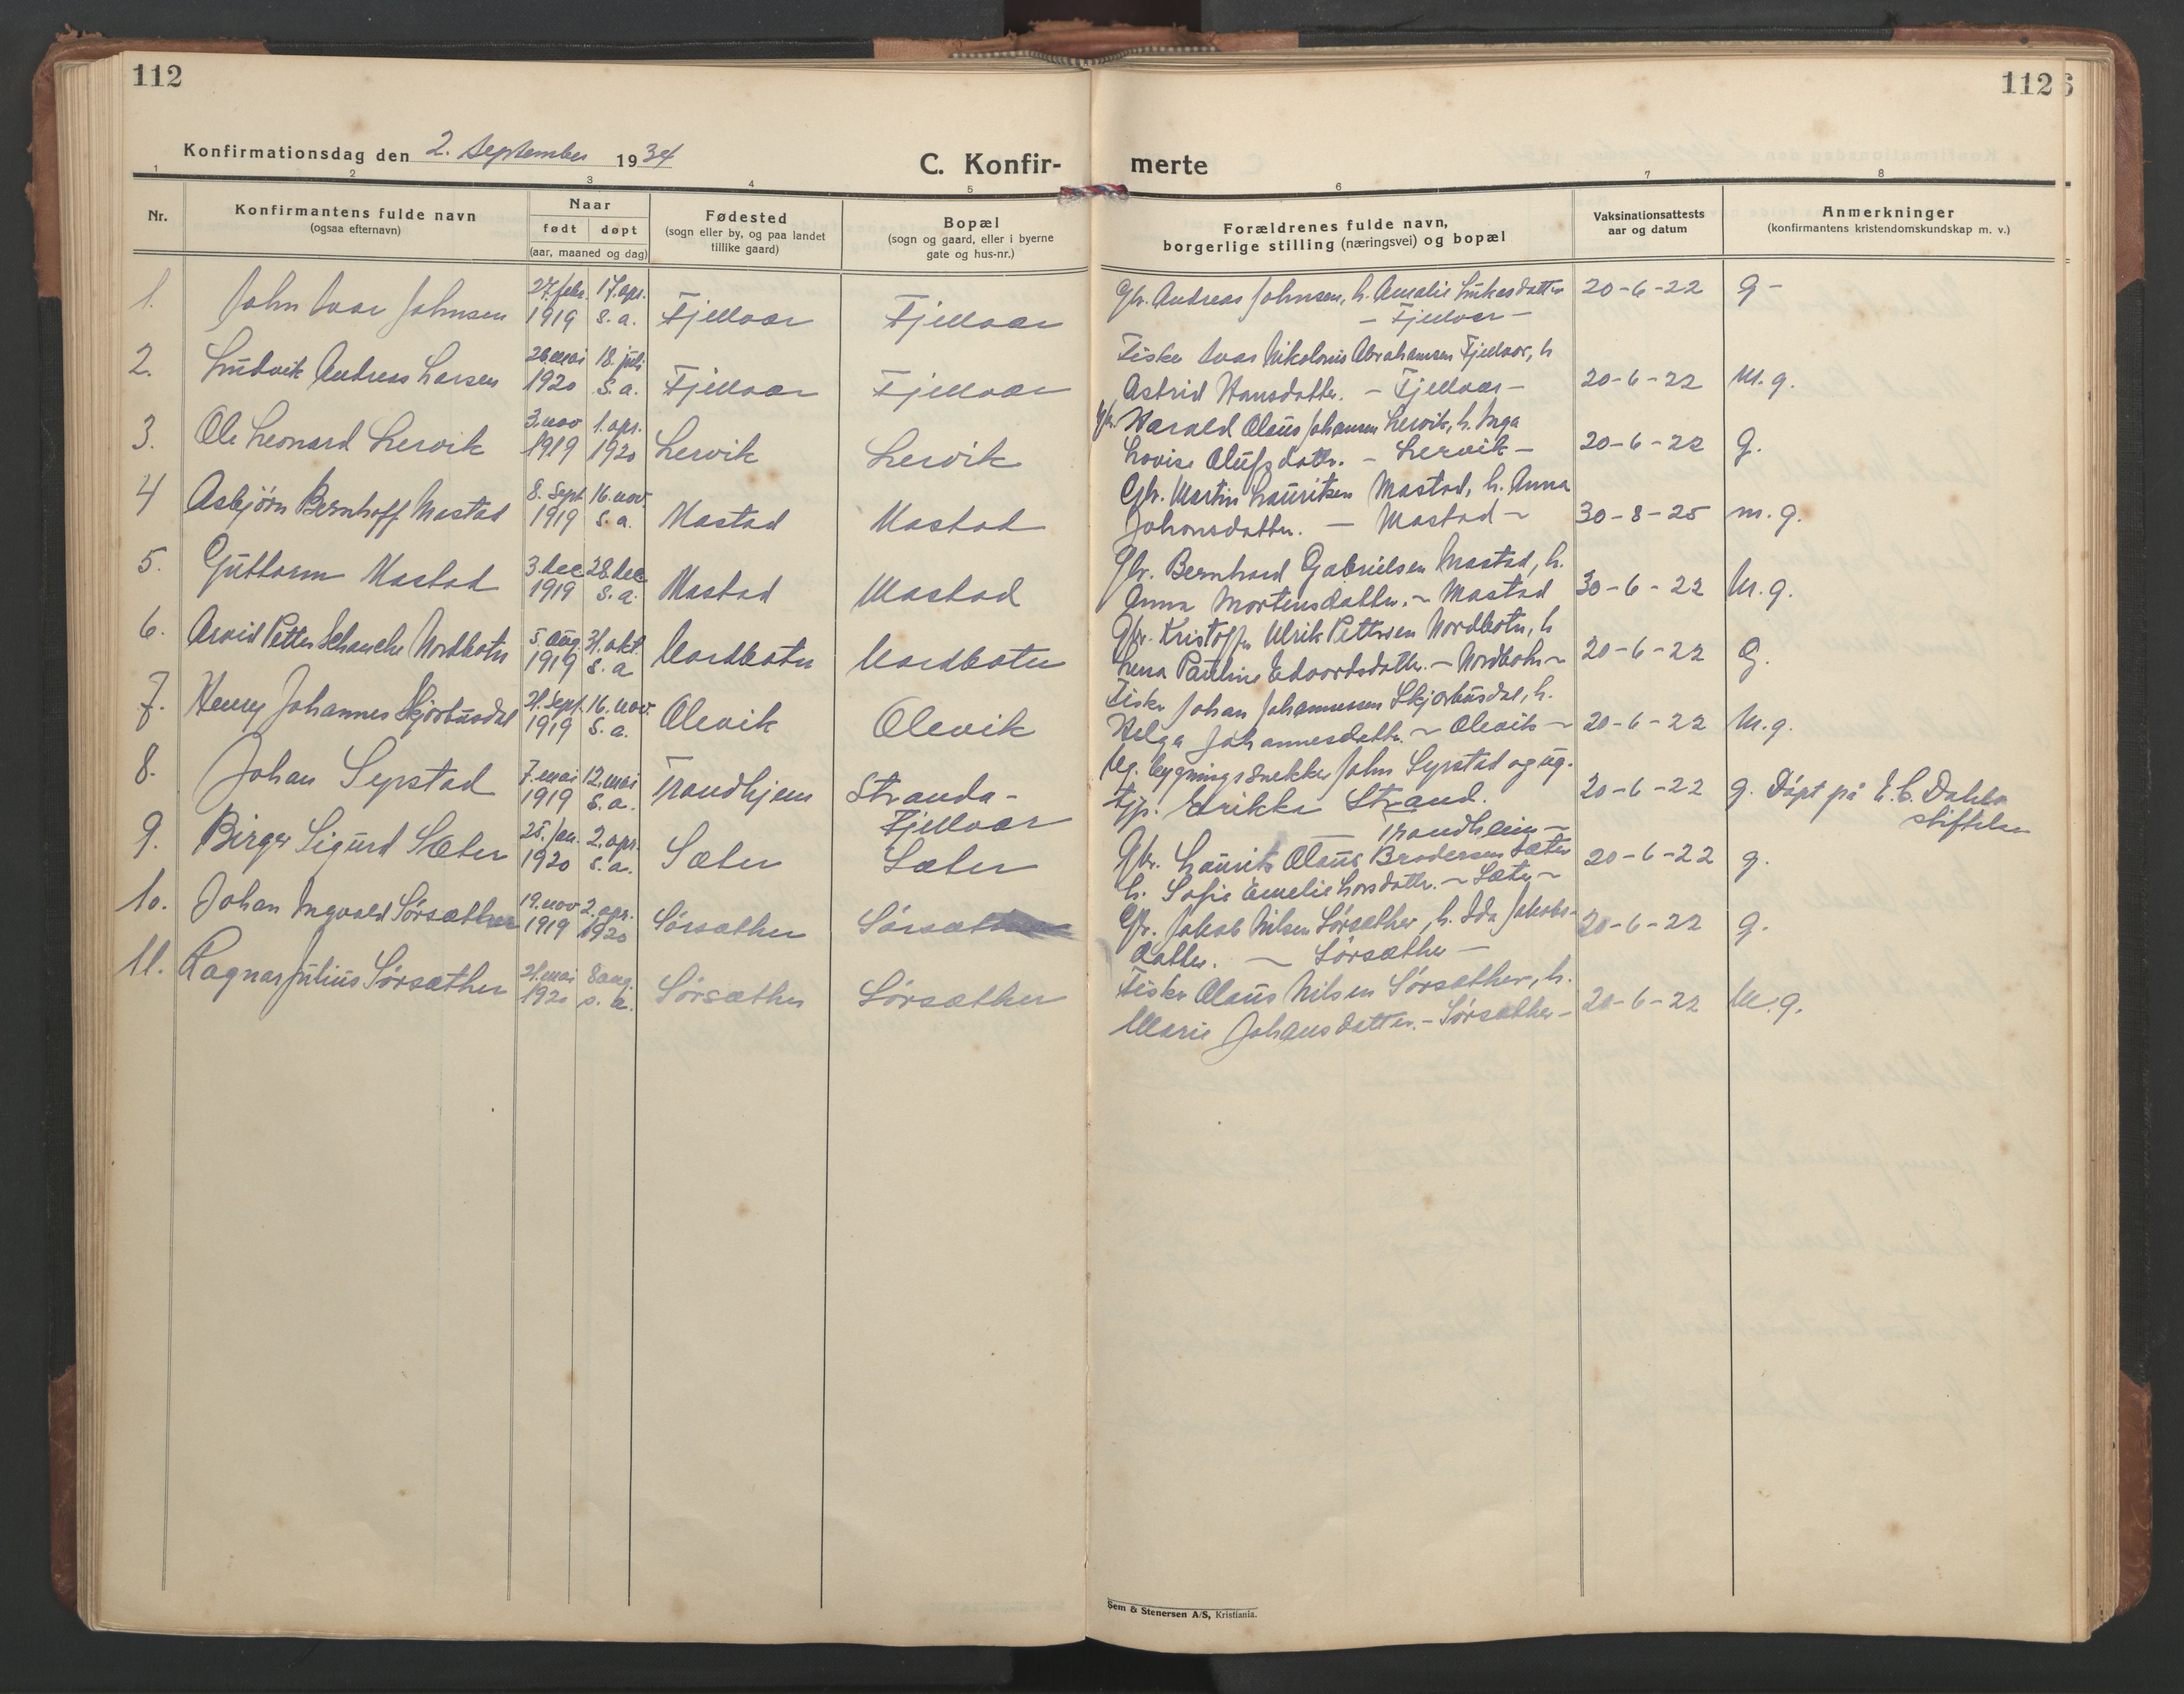 112
112
6
Konfirmationsdag den 2. september 1934
C. Konfir-
merte
1 2 3 4 5 6 7 8
Nr.
Konfirmantens fulde navn
(ogsaa efternavn)
Naar
født døpt
(aar, maaned og dag)
Fødested
(sogn eller by, og paa landet
tillike gaard)
Bopæl
(sogn og gaard, eller i byerne
gate og hus-nr.)
Forældrenes fulde navn,
borgerlige stilling (næringsvei) og bopæl
Vaksinationsattests
aar og datum
Anmerkninger
(konfirmantens kristendomskundskap m. v.)
1. John Ivar Johnsen 27. febr. 1919 17. apr. s. a. Fjellvær Fjellvær
Gbr. Andreas Johnsen, h. Amalie Lukasdatter
- Fjellvær - 20-6-22 g -
2. Ludvik Andreas Larsen 26. mai 1920 18. juli s. a. Fjellvær Fjellvær
Fisker Ivar Nikolaus Abrahamsen Fjellvær, h
Astrid Hansdatter. - Fjellvær - 20-6-22 M. g.
3. Ole Leonard Lervik 3. nov 1919 1. apr. 1920 Lervik Lervik
Gbr. Harald Olaus Johansen Lervik, h. Inga
Lovise Olufsdattr. - Lervik - 20-6-22 g.
4 Asbjörn Bernhoff Mastad 8. Sept 1919 16. nov. s. a. Mastad Mastad
Gbr. Martin Lauritsen Mastad, h. Anna
Johansdatter. - Mastad - 30-8-25 m. g.
5. Guttorm Mastad 3. dec 1919 28. dec s. a. Mastad Mastad
Gbr. Bernhard Gabrielsen Mastad, h.
Anna Mortensdatter. - Mastad 30-6-22 M. g.
6. Arvid Petter Schanche Nordbotn 5. aug. 1919 31. okt. s. a Nordbotn Nordbotn
Gbr. Kristoffer Ulrik Pettersen Nordbotn, h
Lena Pauline Edvardsdattr. - Nordbotn - 20-6-22 G.
7. Henry Johannes Skjorbusdal 21. Sept. 1919 16. nov. s. a. Olevik Olevik
Fisker Johan Johannessen Skjorbusdal, h.
Helga Johannesdattr. - Olevik - 20-6-22 M. g.
8. Johan Sepstad 7. mai 1919 12. mai s. a. Trondhjem Stranda-
Fjellvær
Ug. bygningssnekker John Syrstad og ug.
tjp. Erikka Strand.
- Trondheim - 20-6-22 g. Döpt på E. C. Dahls
stiftelse
9. Birger Sigurd Sæter 25. jan. 1920 2. apr. s. a. Sæter Sæter
Gbr. Laurits Olaus Brodersen Sæter
h. Sofie Emelie Larsdattr. - Sæter - 20-6-22 g.
10. Johan Ingvald Sörsæther 19. nov 1919 2. apr. 1920 Sörsæther Sörsæther
Gbr. Jakob Nilsen Sörsæther, h. Ida Jakobs-
datter. - Sörsæther - 20-6-22 g.
11. Ragnar Julius Sörsæther 21. mai 1920 8 aug. s. a. Sörsæther Sörsæther
Fisker Olaus Nilsen Sörsæther, h.
Marie Johansdatter. - Sörsæther - 20-6-22 M. g.
Sem & Stenersen A/S, Kristiania.